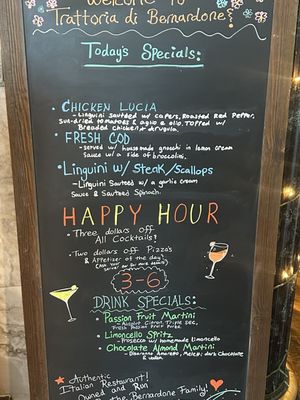 Welcome to
Trattoria di Bernardone!
Today's Specials:
• Chicken Lucia
- Linguini Sauteed w/ capers, Roasted Red Pepper,
Sun-dried tomatoes & aglio e olio. Topped w/
Breaded chicken & Arugula.
• Fresh Cod
- served w/ housemade gnocchi in lemon cream
Sauce w/ a side of broccolini.
• Linguini w/ Steak/Scallops
- Linguini Sauteed w/ a garlic cream
Sauce & Sauteed Spinach.
Happy Hour
• Three dollars off
All Cocktails!
• Two dollars off Pizza's
& Appetizer of the day!
(Ask your server for more details)
3-6
Drink Specials:
• Passion Fruit Martini
- Absolut Citron, Triple Sec,
Fresh Passion Fruit Purée
• Limoncello Spritz
- Prosecco w/ homemade limoncello
• Chocolate Almond Martini
- Disaronno Amaretto, Meletti, dark Chocolate
& vodka
Authentic
Italian Restaurant!
Owned and Run
the Bernardone Family!